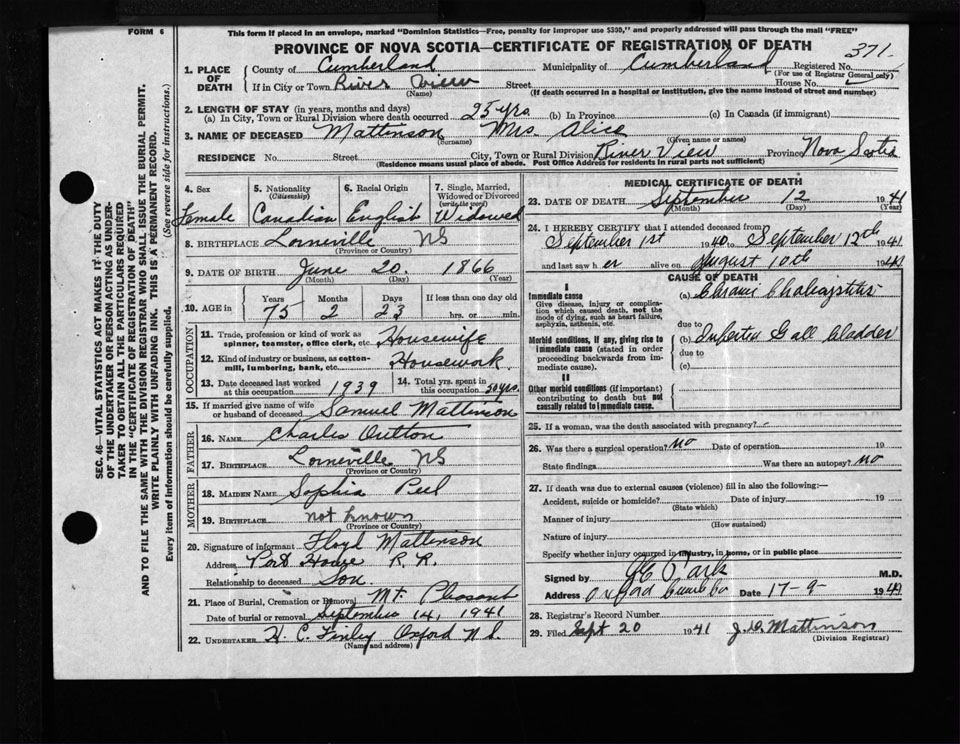 FORM 6
This form if placed in an envelope, marked "Dominion Statistics—Free, penalty for improper use $300," and properly addressed will pass through the mail "FREE"
PROVINCE OF NOVA SCOTIA—CERTIFICATE OF REGISTRATION OF DEATH
371
1. PLACE OF DEATH
County of Cumberland Municipality of Cumberland Registered No.
(For use of Registrar General only)
If in City or Town River View Street House No.
(Name) (If death occurred in a hospital or institution, give the name instead of street and number)
2. LENGTH OF STAY (in years, months and days)
(a) In City, Town or Rural Division where death occurred 25 yrs. (b) In Province (c) In Canada (if immigrant)
3. NAME OF DECEASED Mattinson Mrs. Alice
(Surname) (Given name or names)
RESIDENCE No. Street City, Town or Rural Division River View Province Nova Scotia
(Residence means usual place of abode. Post Office Address for Residents in rural parts not sufficient)
4. Sex Female
5. Nationality (Citizenship) Canadian
6. Racial Origin English
7. Single, Married, Widowed or Divorced (write the word) Widowed
8. BIRTHPLACE Lorneville NS
(Province or Country)
9. DATE OF BIRTH June 20. 1866
(Month) (Day) (Year)
10. AGE in Years 75 Months 2 Days 23 If less than one day old hrs. or min.
OCCUPATION
11. Trade, profession or kind of work as spinner, teamster, office clerk, etc. Housewife
12. Kind of industry or business, as cotton-mill, lumbering, bank, etc. Housework
13. Date deceased last worked at this occupation 1939
14. Total yrs. spent in this occupation 50 yrs.
15. If married give name of wife or husband of deceased Samuel Mattinson
FATHER
16. NAME Charles Outton
17. BIRTHPLACE Lorneville NS
(Province or Country)
MOTHER
18. MAIDEN NAME Sophia Peel
19. BIRTHPLACE not known
(Province or Country)
20. Signature of informant Floyd Mattinson
Address Port Howe R. R.
Relationship to deceased Son.
21. Place of Burial, Cremation or Removal Mt. Pleasant
Date of burial or removal September 14, 1941
22. UNDERTAKER H. C. Finley Oxford N.S.
(Name and address)
MEDICAL CERTIFICATE OF DEATH
23. DATE OF DEATH September 12 1941
(Month) (Day) (Year)
24. I HEREBY CERTIFY that I attended deceased from
September 1st 1940 to September 12th 1941
and last saw her alive on August 10th 1941
CAUSE OF DEATH
I
Immediate cause
Give disease, injury or complication which caused death, not the mode of dying, such as heart failure, asphyxia, asthenia, etc.
(a)
due to
Morbid conditions, if any, giving rise to immediate cause (stated in order proceeding backwards from immediate cause).
(b) Gall bladder
due to
(c)
II
Other morbid conditions (if important) contributing to death but not causally related to immediate cause.
25. If a woman, was the death associated with pregnancy?
26. Was there a surgical operation? No Date of operation 19
State findings Was there an autopsy? No
27. If death was due to external causes (violence) fill in also the following:—
Accident, suicide or homicide? Date of injury 19
(State which)
Manner of injury
(How sustained)
Nature of injury
Specify whether injury occurred in industry, in home, or in public place
Signed by M.D.
Address Oxford Date 17-9- 1941
28. Registrar's Record Number
29. Filed Sept 20 1941 Mattinson
(Division Registrar)
SEC. 46—VITAL STATISTICS ACT MAKES IT THE DUTY
OF THE UNDERTAKER OR PERSON ACTING AS UNDER-
TAKER TO OBTAIN ALL THE PARTICULARS REQUIRED
IN THE "CERTIFICATE OF REGISTRATION OF DEATH"
AND TO FILE THE SAME WITH THE DIVISION REGISTRAR WHO SHALL ISSUE THE BURIAL PERMIT.
WRITE PLAINLY WITH UNFADING INK. THIS IS A PERMANENT RECORD.
Every item of information should be carefully supplied. (See reverse side for instructions.)